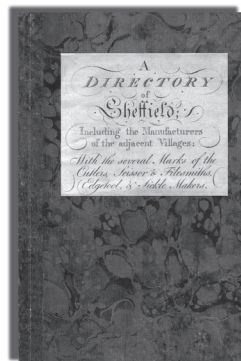 A
DIRECTORY
of
Sheffield;
Including the Manufacturers
of the adjacent Villages:
With the several Marks of the
Cutlers, Scissor & Filesmiths,
Edgetool, & Sickle Makers.